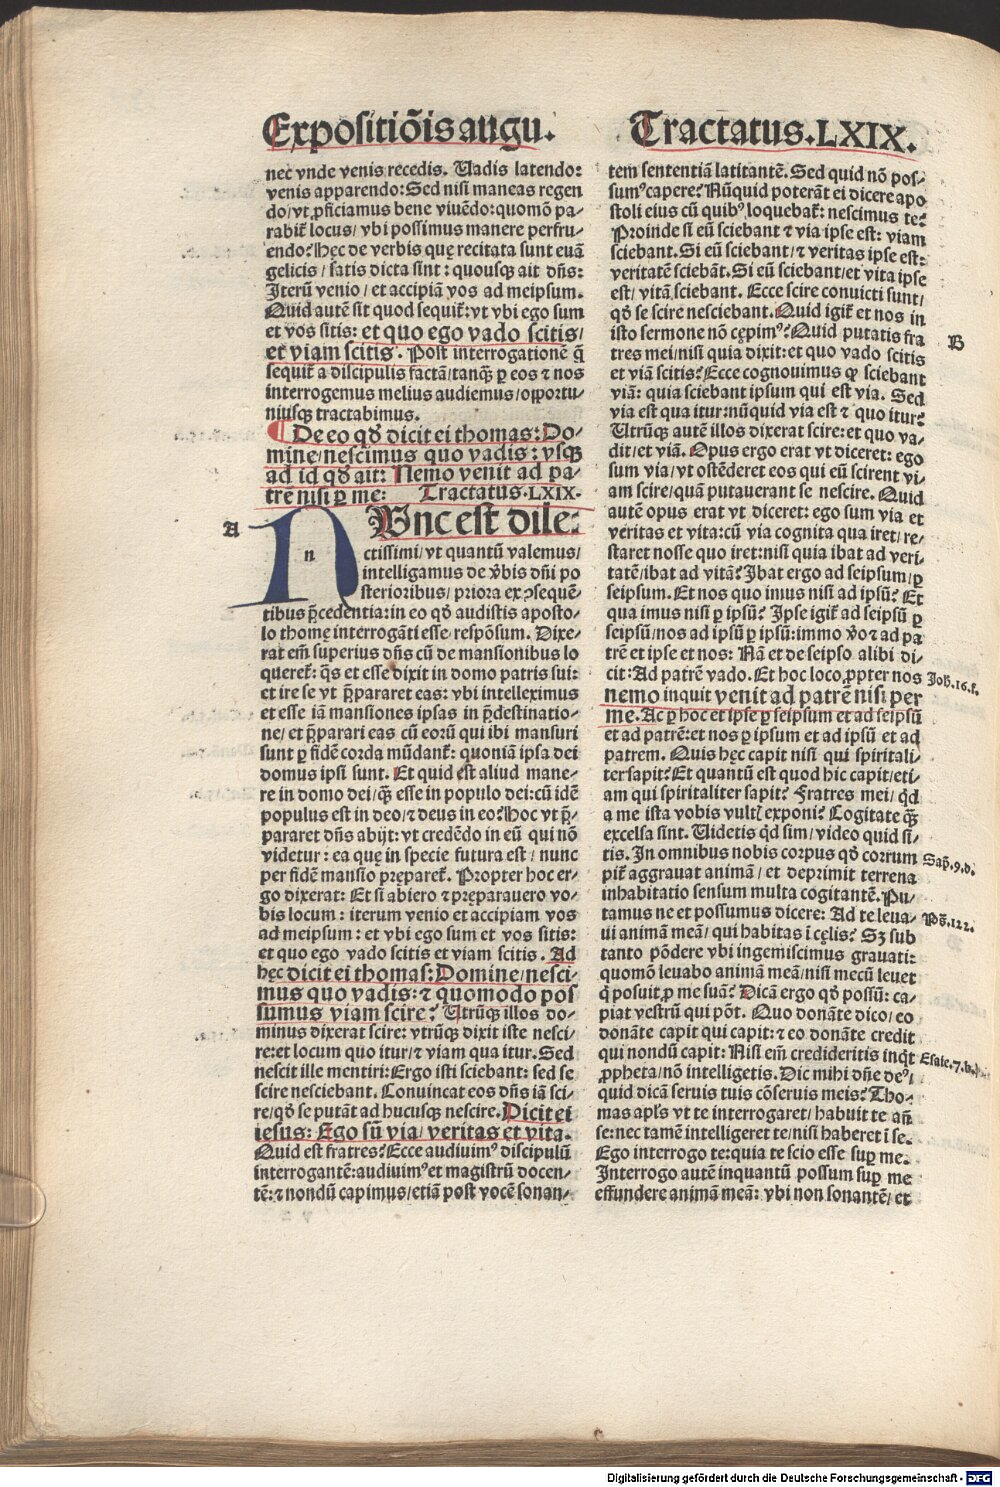 Expositiōis augu.
nec vnde venis recedis. Uadis latendo:
venis apparendo: Sed nisi maneas regen
do/vt ꝓficiamus bene viuēdo: quomō pa-
rabit̄ locus/ vbi possimus manere perfru-
endo? Hęc de verbis quę recitata sunt euā
gelicis/ satis dicta sint: quousqꝫ ait dn̄s:
Iterū venio/ et accipiā vos ad meipsum.
Quid autē sit quod sequit̄: vt vbi ego sum
et vos sitis: et quo ego vado scitis/
et viam scitis. Post interrogationē q̄
sequit̄ a discipulis factā/tanqꝫ ꝑ eos ⁊ nos
interrogemus melius audiemus/opportu-
niusqꝫ tractabimus.
¶ De eo qd̄ dicit ei thomas: Do-
mine/nescimus quo vadis: vsqꝫ
ad id qd̄ ait: Nemo venit ad pa-
trē nisi ꝑ me: Tractatus.LXIX.
A
n
NUnc est dile-
ctissimi/vt quantū valemus/
intelligamus de v̄bis dn̄i po
sterioribus/ priora ex ꝯsequē-
tibus p̄cedentia: in eo qd̄ audistis aposto-
lo thomę interrogāti esse respōsum. Dixe-
rat em̄ superius dn̄s cū de mansionibus lo
queret̄: q̄s et esse dixit in domo patris sui:
et ire se vt p̄pararet eas: vbi intelleximus
et esse iā mansiones ipsas in p̄destinatio-
ne/ et p̄parari eas cū eorū qui ibi mansuri
sunt ꝑ fidē corda mūdant̄: quoniā ipsa dei
domus ipsi sunt. Et quid est aliud mane-
re in domo dei/qꝫ esse in populo dei: cū idē
populus est in deo/⁊ deus in eo? Hoc vt p̄-
pararet dn̄s abijt: vt credēdo in eū qui nō
videtur: ea quę in specie futura est/ nunc
per fidē mansio pręparet̄. Propter hoc er-
go dixerat: Et si abiero ⁊ pręparauero vo-
bis locum: iterum venio et accipiam vos
ad meipsum: et vbi ego sum et vos sitis:
et quo ego vado scitis et viam scitis. Ad
hęc dicit ei thomas: Domine/nesci-
mus quo vadis: ⁊ quomodo pos
sumus viam scire? Utrūqꝫ illos do-
minus dixerat scire: vtrūqꝫ dixit iste nesci-
re: et locum quo itur/⁊ viam qua itur. Sed
nescit ille mentiri: Ergo isti sciebant: sed se
scire nesciebant. Conuincat eos dn̄s iā sci-
re/qd̄ se putāt ad hucusqꝫ nescire. Dicit ei
iesus: Ego sū via/ veritas et vita.
Quid est fratres? Ecce audiuimꝰ discipulū
interrogantē: audiuimꝰ et magistrū docen-
tē: ⁊ nondū capimus/etiā post vocē sonan-
Tractatus.LXIX.
tem sententiā latitantē. Sed quid nō pos-
sumꝰ capere? Nūquid poterāt ei dicere apo
stoli eius cū quibꝰ loquebat̄: nescimus te?
Proinde si eū sciebant ⁊ via ipse est: viam
sciebant. Si eū sciebant/⁊ veritas ipse est:
veritatē sciebāt. Si eū sciebant/et vita ipse
est/ vitā sciebant. Ecce scire conuicti sunt/
qd̄ se scire nesciebant. Quid igit̄ et nos in
isto sermone nō cępimꝰ? Quid putatis fra
tres mei/nisi quia dixit: et quo vado scitis
et viā scitis? Ecce cognouimus ꝙ sciebant
viā: quia sciebant ipsum qui est via. Sed
via est qua itur: nūquid via est ⁊ quo itur?
Utrūqꝫ autē illos dixerat scire: et quo va-
dit/et viā. Opus ergo erat vt diceret: ego
sum via/vt ostēderet eos qui eū scirent vi-
am scire/quā putauerant se nescire. Quid
autē opus erat vt diceret: ego sum via et
veritas et vita: cū via cognita qua iret/re-
staret nosse quo iret: nisi quia ibat ad veri-
tatē/ibat ad vitā? Ibat ergo ad seipsum/ꝑ
seipsum. Et nos quo imus nisi ad ipsū? Et
qua imus nisi ꝑ ipsū? Ipse igit̄ ad seipsū ꝑ
seipsū/nos ad ipsū ꝑ ipsū: immo v̄o ⁊ ad pa
trē et ipse et nos: Nā et de seipso alibi di-
cit: Ad patrē vado. Et hoc loco ꝓpter nos
nemo inquit venit ad patrē nisi per
me. Ac ꝑ hoc et ipse ꝑ seipsum et ad seipsū
et ad patrē: et nos ꝑ ipsum et ad ipsū et ad
patrem. Quis hęc capit nisi qui spiritali-
ter sapit? Et quantū est quod hic capit/eti-
am qui spiritaliter sapit? Fratres mei/ qd̄
a me ista vobis vult̄ exponi? Cogitate qꝫ
excelsa sint. Uidetis qd̄ sim/ video quid si-
tis. In omnibus nobis corpus qd̄ corrum
pit̄ aggrauat animā/ et deprimit terrena
inhabitatio sensum multa cogitantē. Pu-
tamus ne et possumus dicere: Ad te leua-
ui animā meā/ qui habitas ī cęlis? Sꝫ sub
tanto pōdere vbi ingemiscimus grauati:
quomō leuabo animā meā/nisi mecū leuet
q̄ posuit ꝓ me suā? Dicā ergo qd̄ possū: ca-
piat vestrū qui pōt. Quo donāte dico/eo
donāte capit qui capit: ⁊ eo donāte credit
qui nondū capit: Nisi em̄ credideritis inq̄t
ꝓpheta/nō intelligetis. Dic mihi dn̄e deꝰ/
quid dicā seruis tuis cōseruis meis? Tho-
mas apl̄s vt te interrogaret/ habuit te an̄
se: nec tamē intelligeret te/nisi haberet ī se.
Ego interrogo te: quia te scio esse sup̱ me.
Interrogo autē inquantū possum sup̱ me
effundere animā meā: vbi non sonantē/ et
B
Joh̄.16.f.
Sap̄.9.d.
Ps̄.122.
Esaie.7.b.
Digitalisierung gefördert durch die Deutsche Forschungsgemeinschaft - DFG